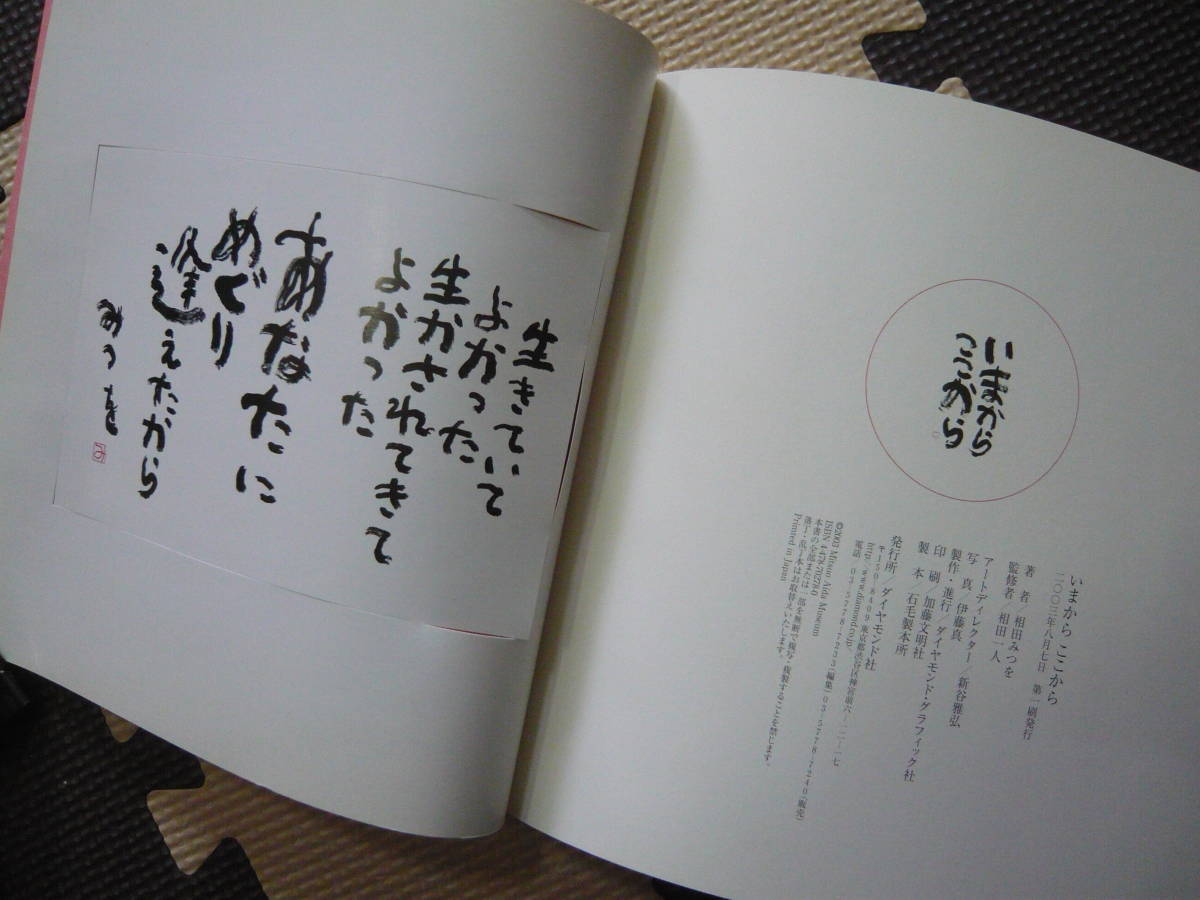 いまから
ここから
いまから ここから
二〇〇三年八月七日 第一刷発行
著 者／相田みつを
監修者／相田一人
アートディレクター／新谷雅弘
写 真／伊藤真
製作・進行／ダイヤモンド・グラフィック社
印 刷／加藤文明社
製 本／石毛製本所
発行所／ダイヤモンド社
〒150-8409 東京都渋谷区神宮前六-一二-一七
http://www.diamond.co.jp/
電話 03・5778・7233(編集) 03・5778・7240(販売)
©2003 Mitsuo Aida Museum
ISBN 4-478-70278-0
本書の全部または一部を無断で複写・複製することを禁じます。
落丁・乱丁本はお取替えいたします。
Printed in Japan
生きていて
よかった
生かされてきて
よかった
あなたに
めぐり
逢えたから
みつを